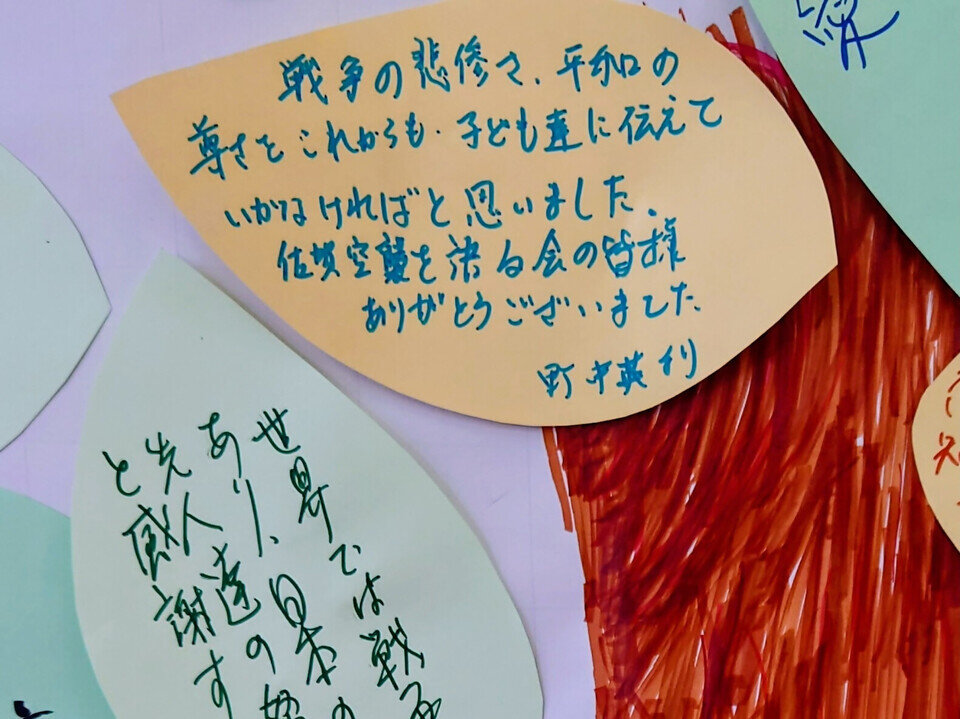 戦争の悲惨さ、平和の
尊さをこれからも・子ども達に伝えて
いかなければと思いました、
佐賀空襲を語る会の皆様
ありがとうございました
野中英利
世界では戦争
あり、日本の
先人達の
と感謝す